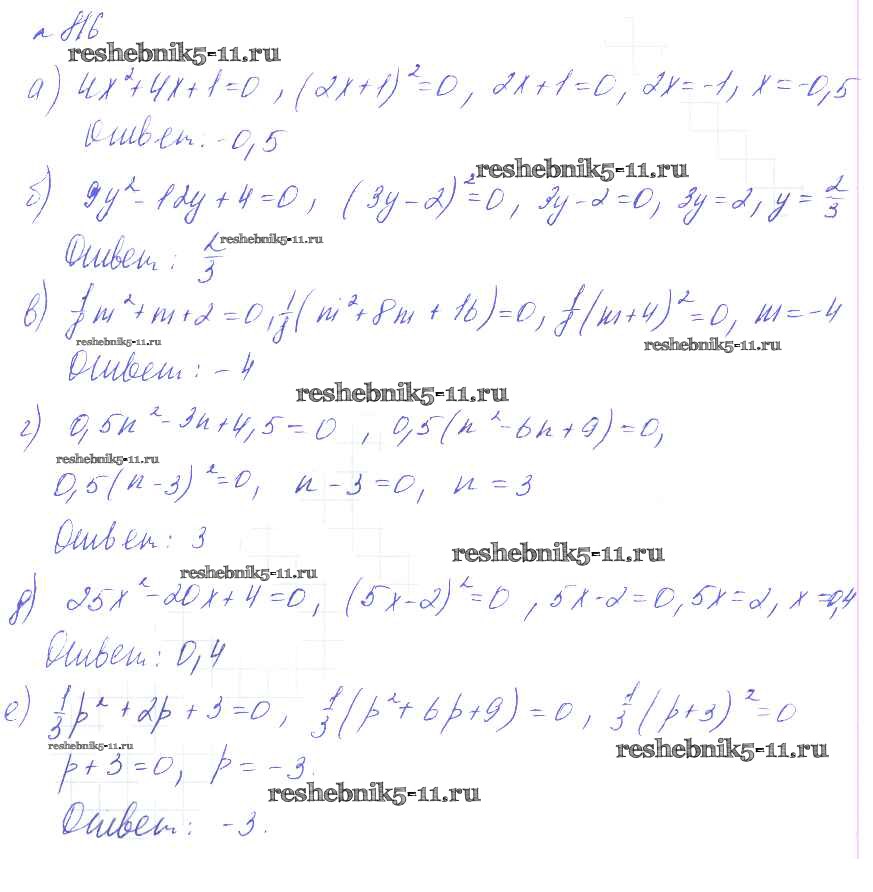 № 816
reshebnik5-11.ru
а) 4x²+4x+1=0, (2x+1)²=0, 2x+1=0, 2x=-1, x=-0,5
Ответ: -0,5
reshebnik5-11.ru
б) 9y²-12y+4=0, (3y-2)²=0, 3y-2=0, 3y=2, y=2/3
reshebnik5-11.ru
Ответ: 2/3
в) 1/8m²+m+2=0, 1/8(m²+8m+16)=0, 1/8(m+4)²=0, m=-4
reshebnik5-11.ru reshebnik5-11.ru
Ответ: -4
reshebnik5-11.ru
г) 0,5n²-3n+4,5=0, 0,5(n²-6n+9)=0,
reshebnik5-11.ru
0,5(n-3)²=0, n-3=0, n=3
Ответ: 3
reshebnik5-11.ru
reshebnik5-11.ru
д) 25x²-20x+4=0, (5x-2)²=0, 5x-2=0, 5x=2, x=0,4
Ответ: 0,4
е) 1/3p²+2p+3=0, 1/3(p²+6p+9)=0, 1/3(p+3)²=0
reshebnik5-11.ru reshebnik5-11.ru
p+3=0, p=-3.
reshebnik5-11.ru
Ответ: -3.